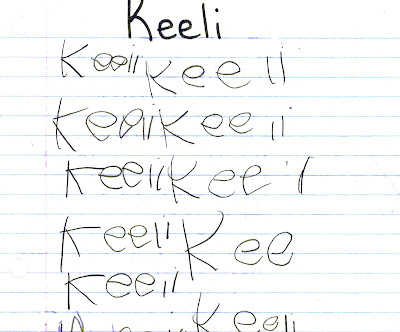 Keeli
Keeii Keell
Keeii Keeii
Keeii Keeil
Keeli Kee
Keeii
Keeli